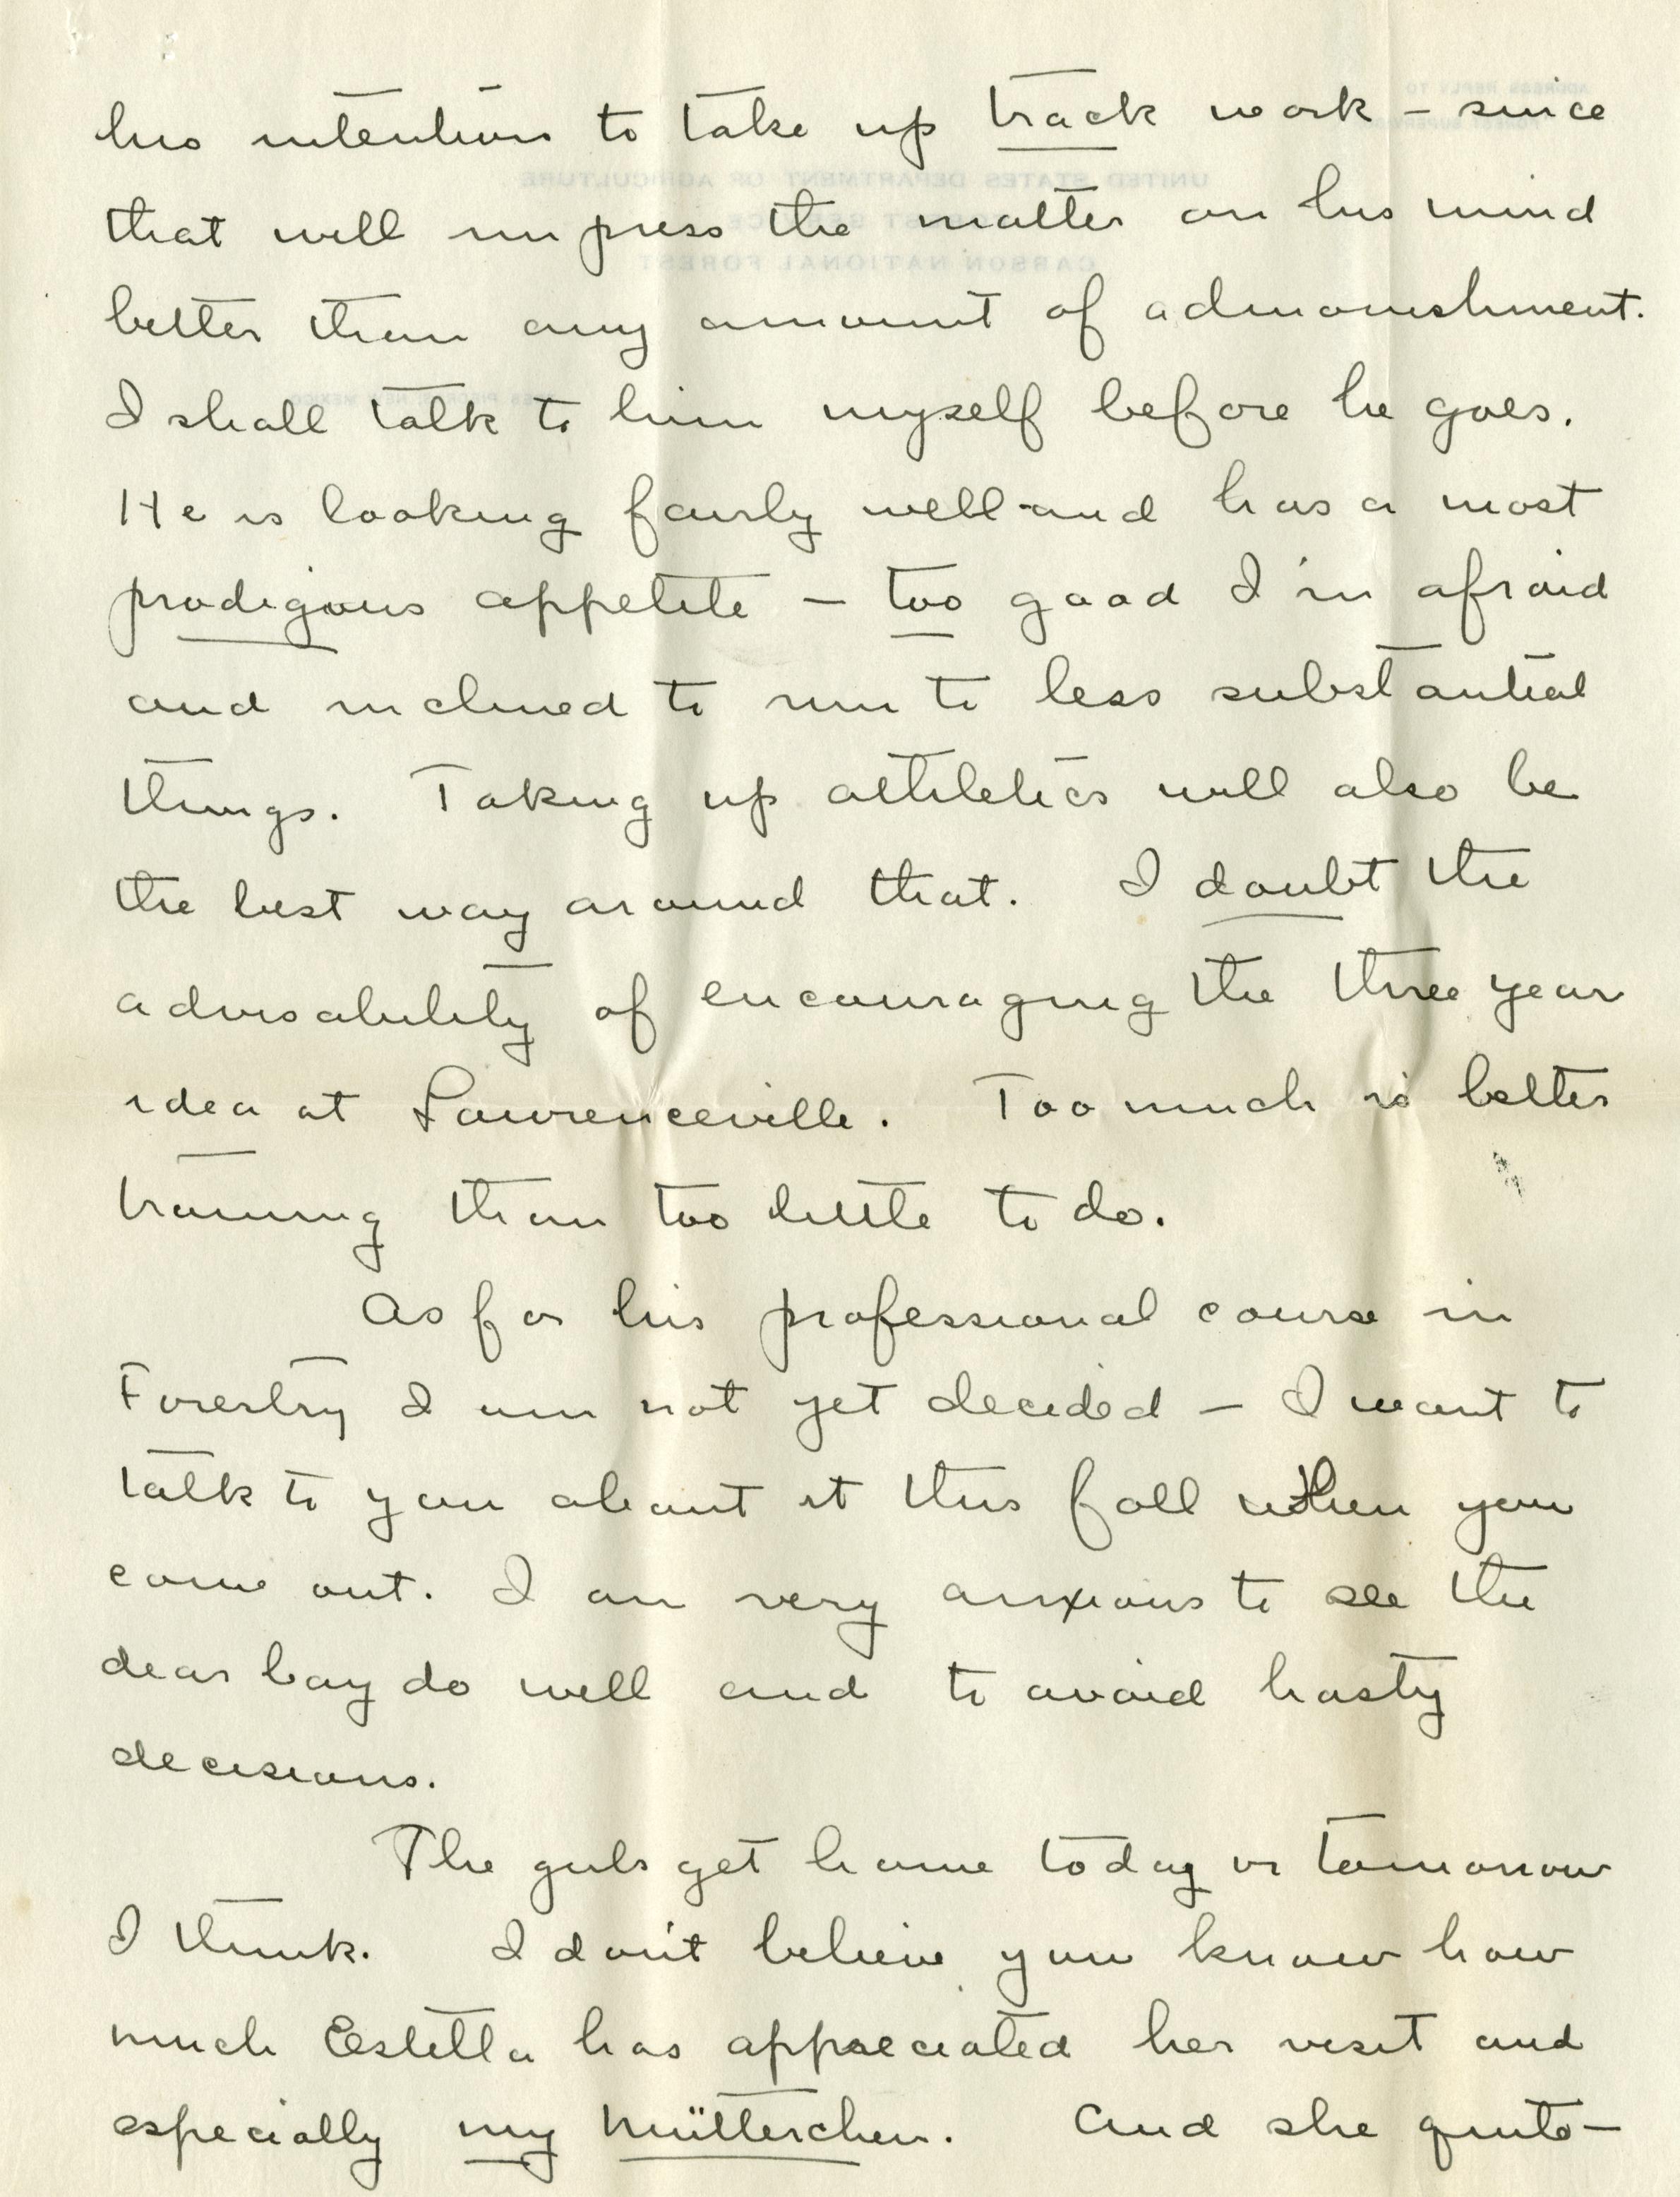 his intention to take up track work – since
that will impress the matter on his mind
better than any amount of admonishment.
I shall talk to him myself before he goes.
He is looking fairly well and has a most
prodigous appetite – too good I'm afraid
and inclined to run to less substantial
things. Taking up athletics will also be
the best way around that. I doubt the
advisability of encouraging the three year
idea at Lawrenceville. Too much is better
training than too little to do.
As for his professional course in
Forestry I am not yet decided – I want to
talk to you about it this fall when you
come out. I am very anxious to see the
dear boy do well and to avoid hasty
decisions.
The girls get home today or tomorrow
I think. I don't believe you know how
much Estella has appreciated her visit and
especially my Mütterchen. And she quite –
ADDRESS REPLY TO
FOREST SUPERVISOR
UNITED STATES DEPARTMENT OF AGRICULTURE
FOREST SERVICE
CARSON NATIONAL FOREST